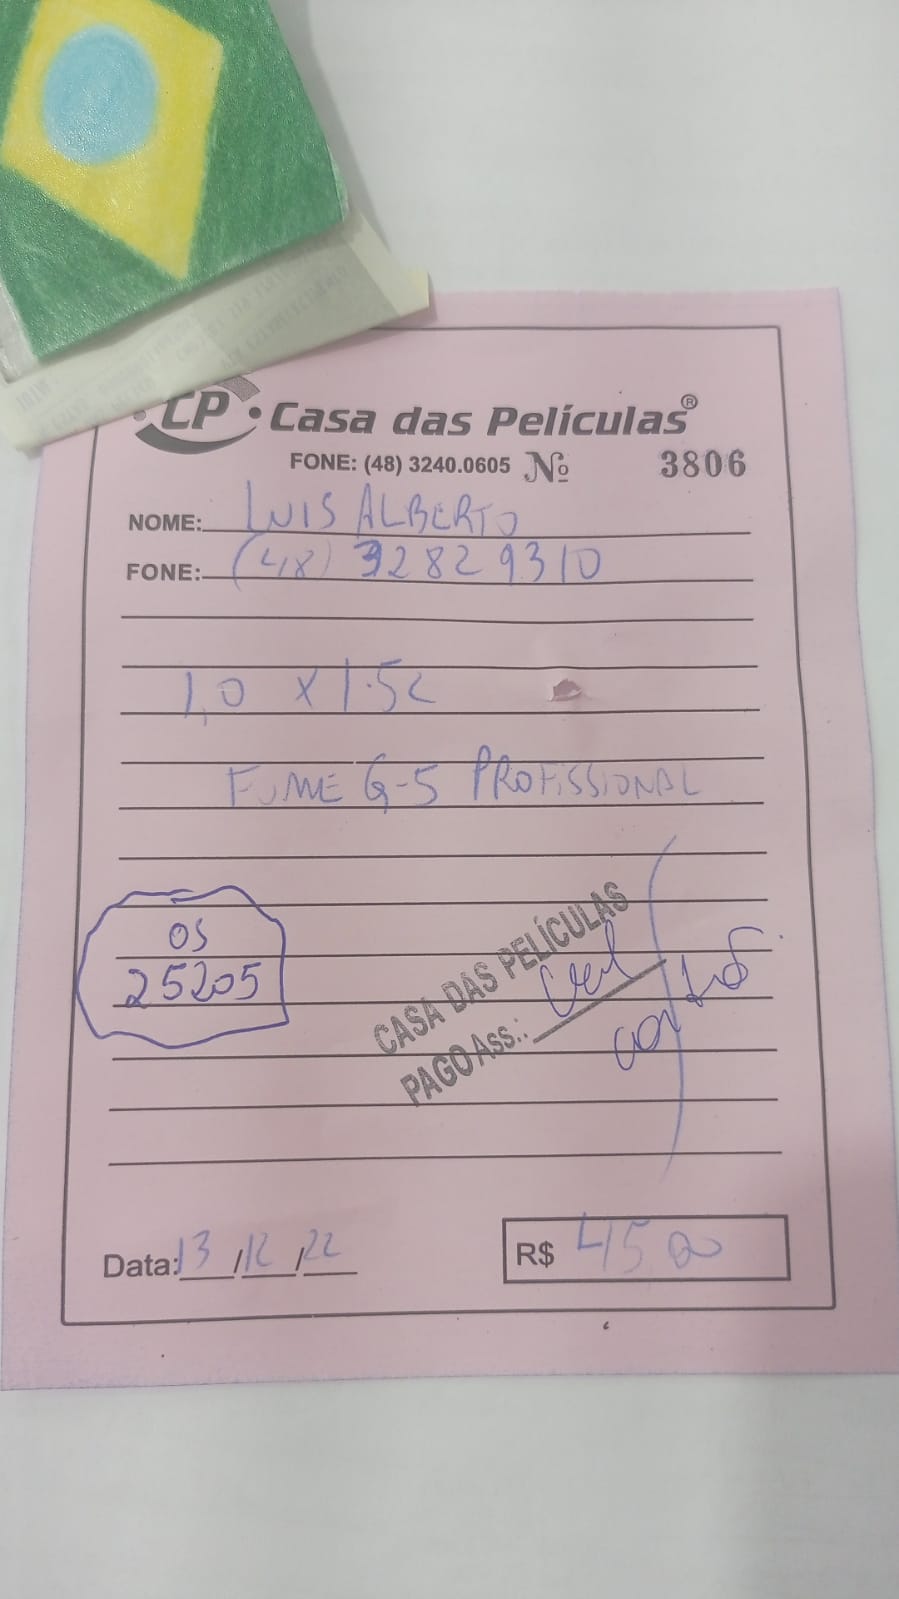 CP • Casa das Películas®
FONE: (48) 3240.0605 Nº 3806
NOME: LUIS ALBERTO
FONE: (48) 32829310
1,0 x 1.52
FUME G-5 PROFISSIONAL
OS
25205
CASA DAS PELÍCULAS
PAGO Ass.:
Data: 13/12/22
R$ 45 00